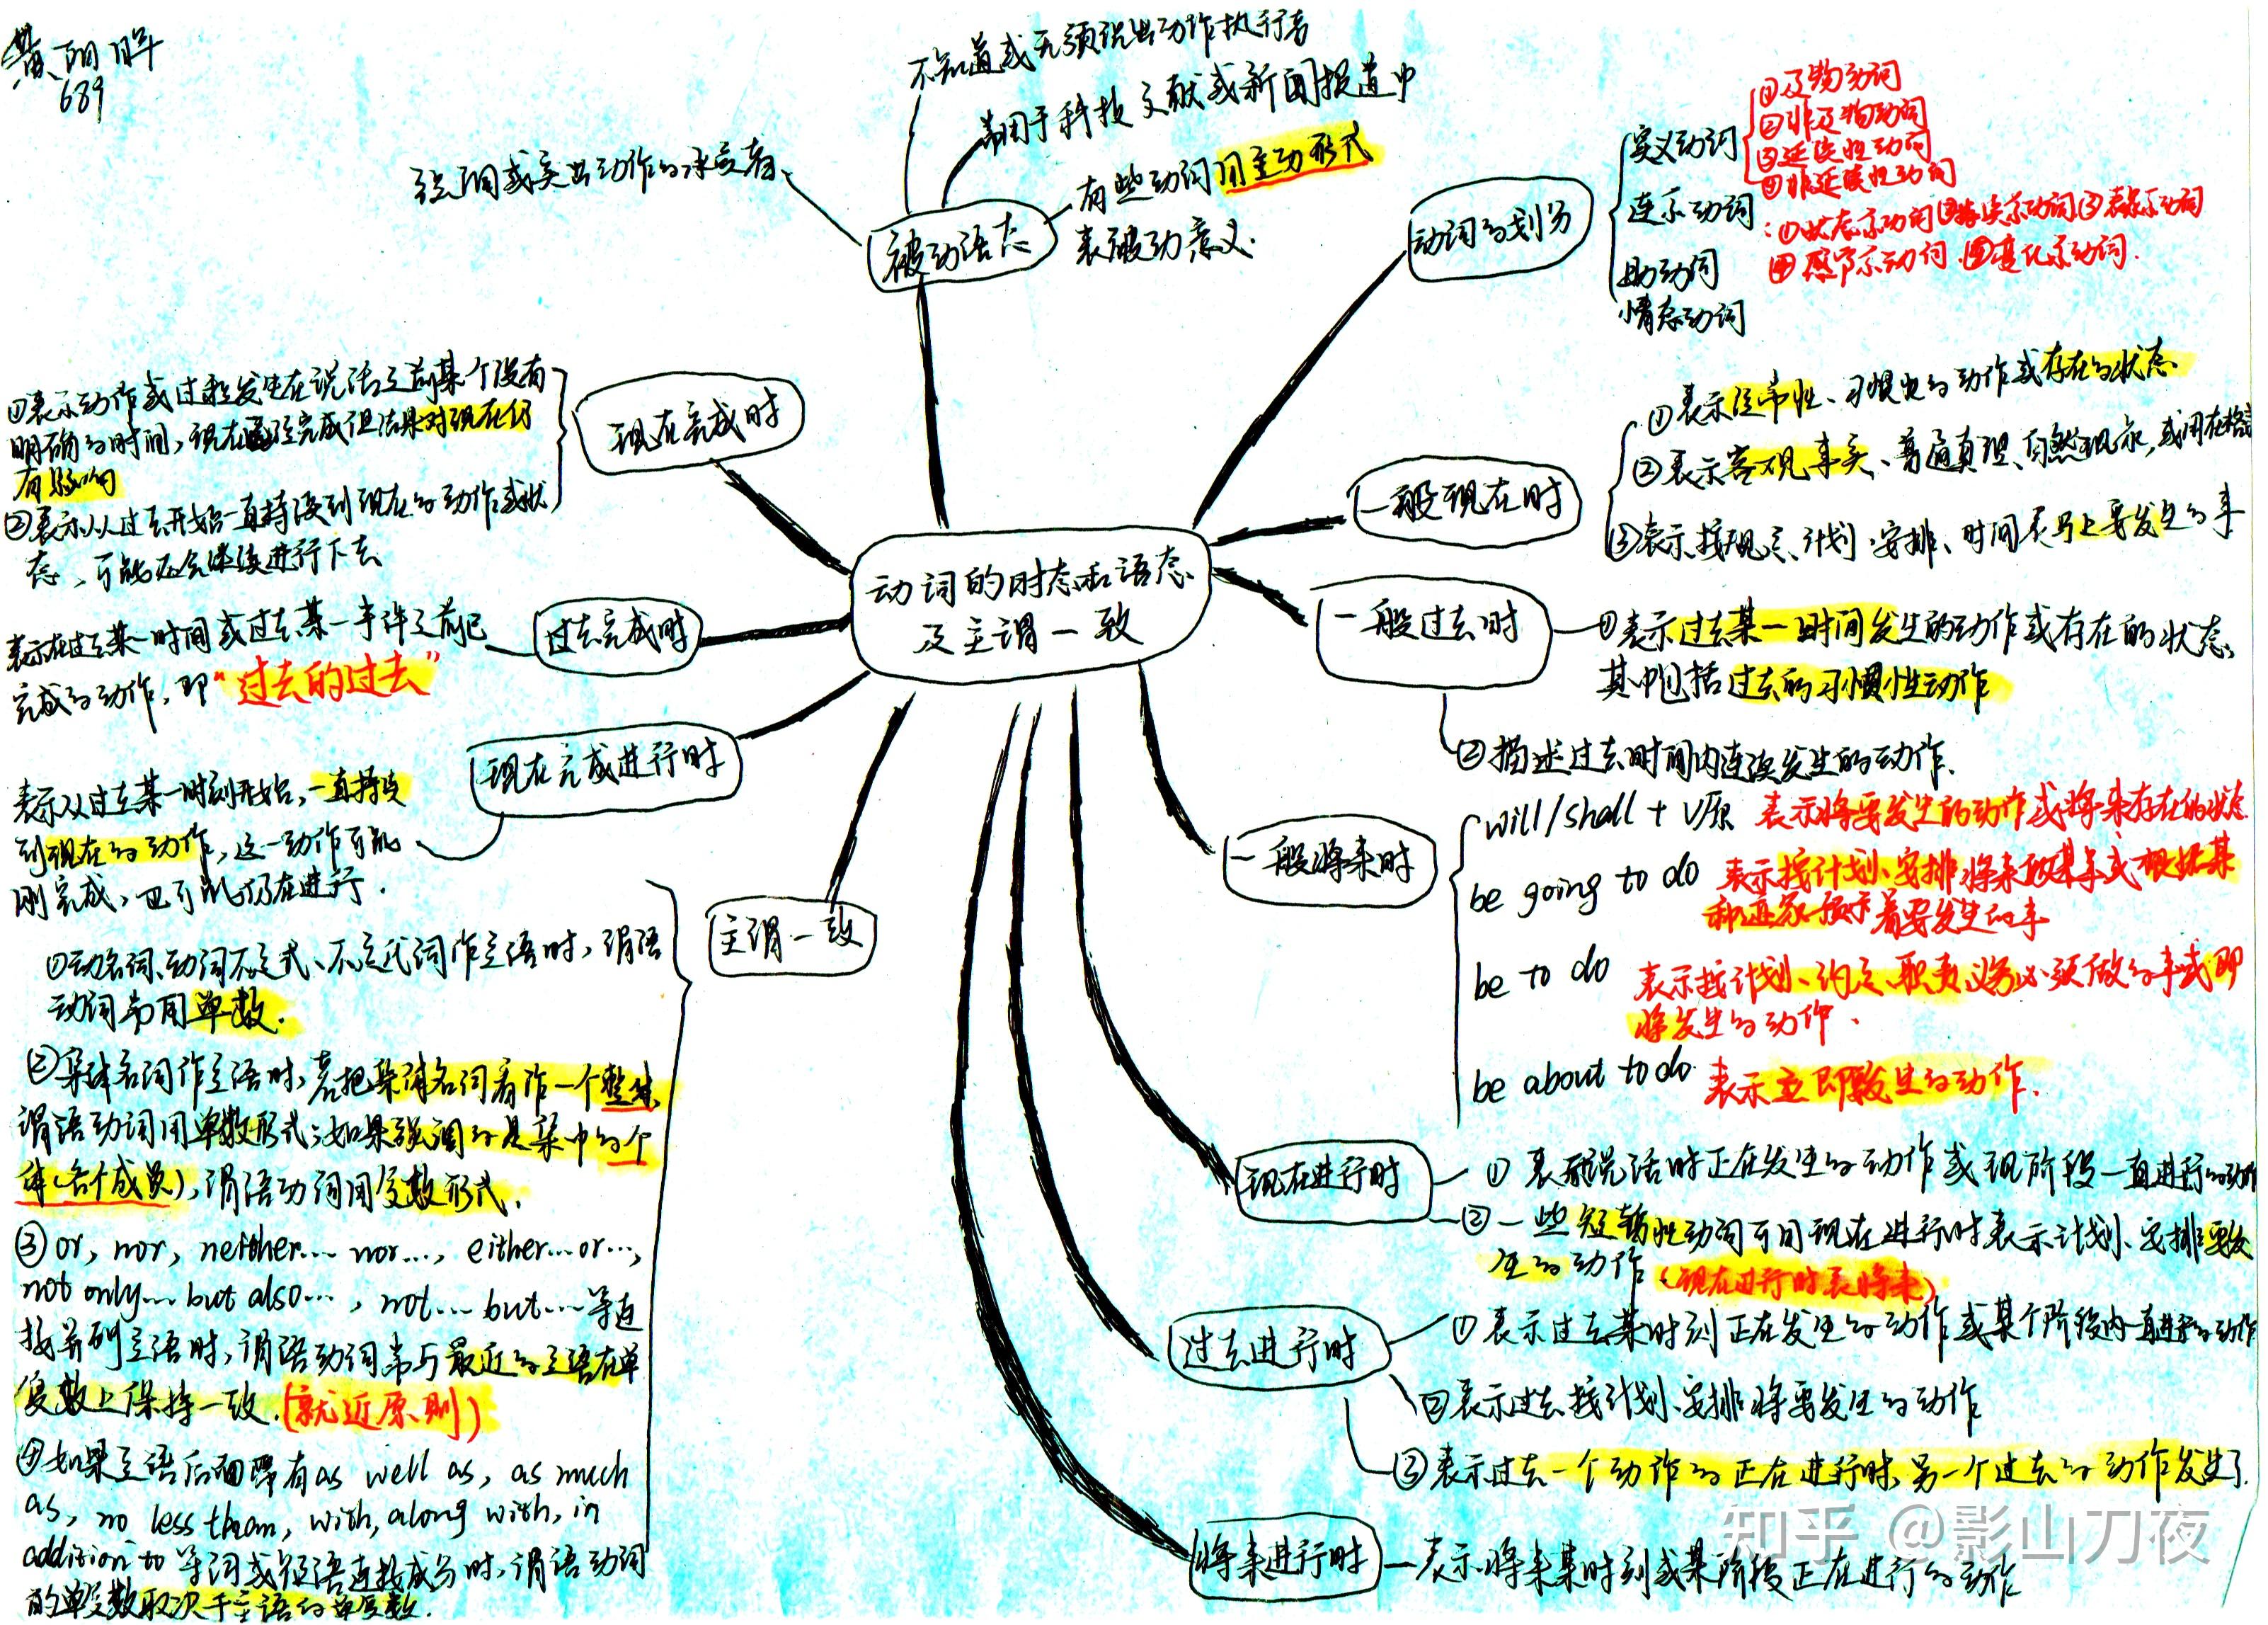 689
不知道或无须说出动作执行者
常用于科技文献或新闻报道中
强调或突出动作的承受者
有些动词用主动形式
表被动意义.
被动语态
动词的划分
实义动词
①及物动词
②非及物动词
③延续性动词
④非延续性动词
连系动词
:①状态系动词②持续系动词③表象系动词
④感官系动词.⑤变化系动词.
助动词
情态动词
动词的时态和语态
及主谓一致
现在完成时
①表示动作或过程发生在说话之前某个没有
明确的时间,现在已经完成但结果对现在仍
有影响
②表示从过去开始一直持续到现在的动作或状
态,可能还会继续进行下去
过去完成时
表示在过去某一时间或过去某一事件之前已
完成的动作,即"过去的过去"
现在完成进行时
表示从过去某一时刻开始,一直持续
到现在的动作,这一动作可能
刚完成、也可能仍在进行.
主谓一致
①动名词、动词不定式、不定代词作主语时,谓语
动词常用单数.
②集体名词作主语时,若把集体名词看作一个整体,
谓语动词用单数形式;如果强调的是集中的个
体(各个成员),谓语动词用复数形式.
③or, nor, neither... nor..., either...or...,
not only... but also..., not... but...等连
接并列主语时,谓语动词常与最近的主语在单
复数上保持一致.(就近原则)
④如果主语后面带有as well as, as much
as, no less than, with, along with, in
addition to 等词或短语连接成分时,谓语动词
的单复数取决于主语的单复数.
一般现在时
①表示经常性、习惯性的动作或存在的状态
②表示客观事实、普遍真理、自然现象,或用在格言
③表示按规定、计划、安排、时间表马上要发生的事
一般过去时
①表示过去某一时间发生的动作或存在的状态,
其中包括过去的习惯性动作
②描述过去时间内连续发生的动作.
一般将来时
will/shall + V原 表示将要发生的动作或将来存在的状态
be going to do 表示按计划、安排将来做某事或根据某
种迹象预示着要发生的事
be to do 表示按计划、约定、职责、义务必须做的事或即
将发生的动作.
be about to do. 表示立即发生的动作.
现在进行时
①表示说话时正在发生的动作或现阶段一直进行的动作
②一些短暂性动词可用现在进行时表示计划、安排要发
生的动作(现在进行时表将来)
过去进行时
①表示过去某时刻正在发生的动作或某个阶段内一直进行的动作
②表示过去按计划、安排将要发生的动作
③表示过去一个动作的正在进行时,另一个过去的动作发生了.
将来进行时
表示将来某时刻或某阶段正在进行的动作
知乎 @影山刀夜